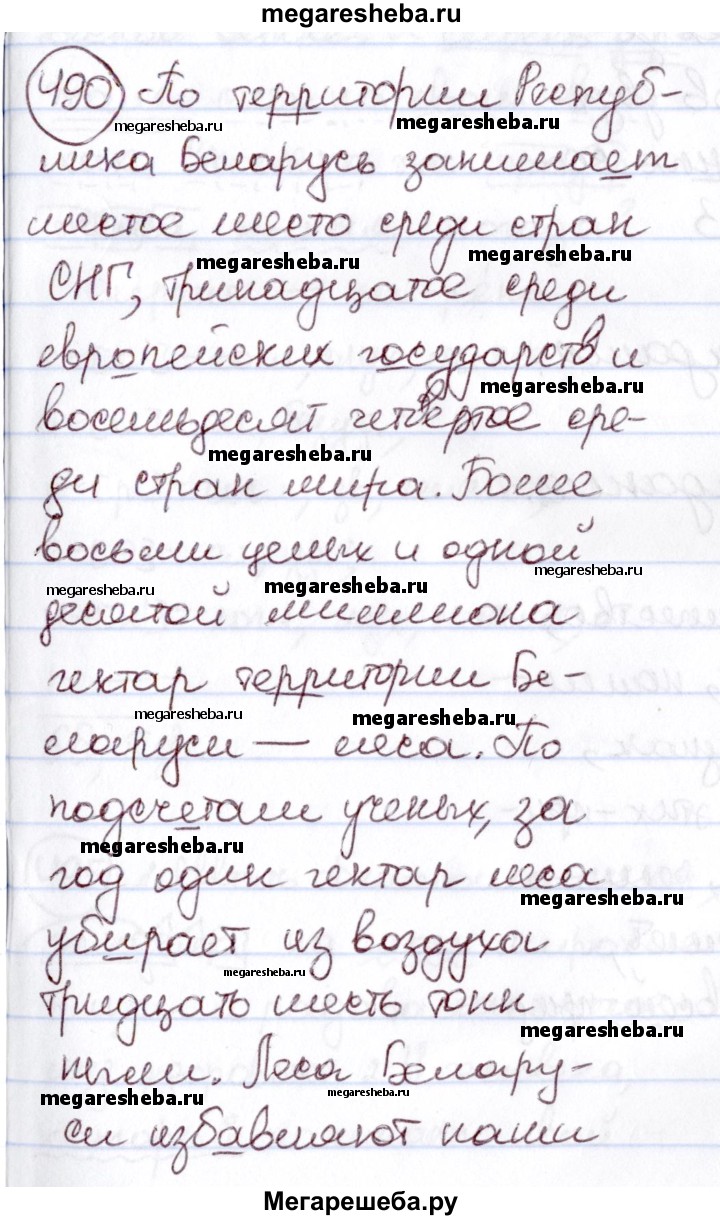 megaresheba.ru
490 По территории Респуб-
megaresheba.ru megaresheba.ru
лика Беларусь занимает
шестое место среди стран
megaresheba.ru megaresheba.ru
СНГ, тринадцатое среди
европейских государств и
megaresheba.ru
восемьдесят четвёртое сре-
megaresheba.ru
ди стран мира. Более
восьми целых и одной
megaresheba.ru megaresheba.ru megaresheba.ru
десятой миллиона
гектар территории Бе-
megaresheba.ru megaresheba.ru
ларуси — леса. По
подсчетам ученых, за
megaresheba.ru
год один гектар леса
megaresheba.ru
убирает из воздуха
megaresheba.ru
тридцать шесть тонн
megaresheba.ru
пыли. Леса Белару-
megaresheba.ru megaresheba.ru
си избавляют наши
Мегарешеба.ру